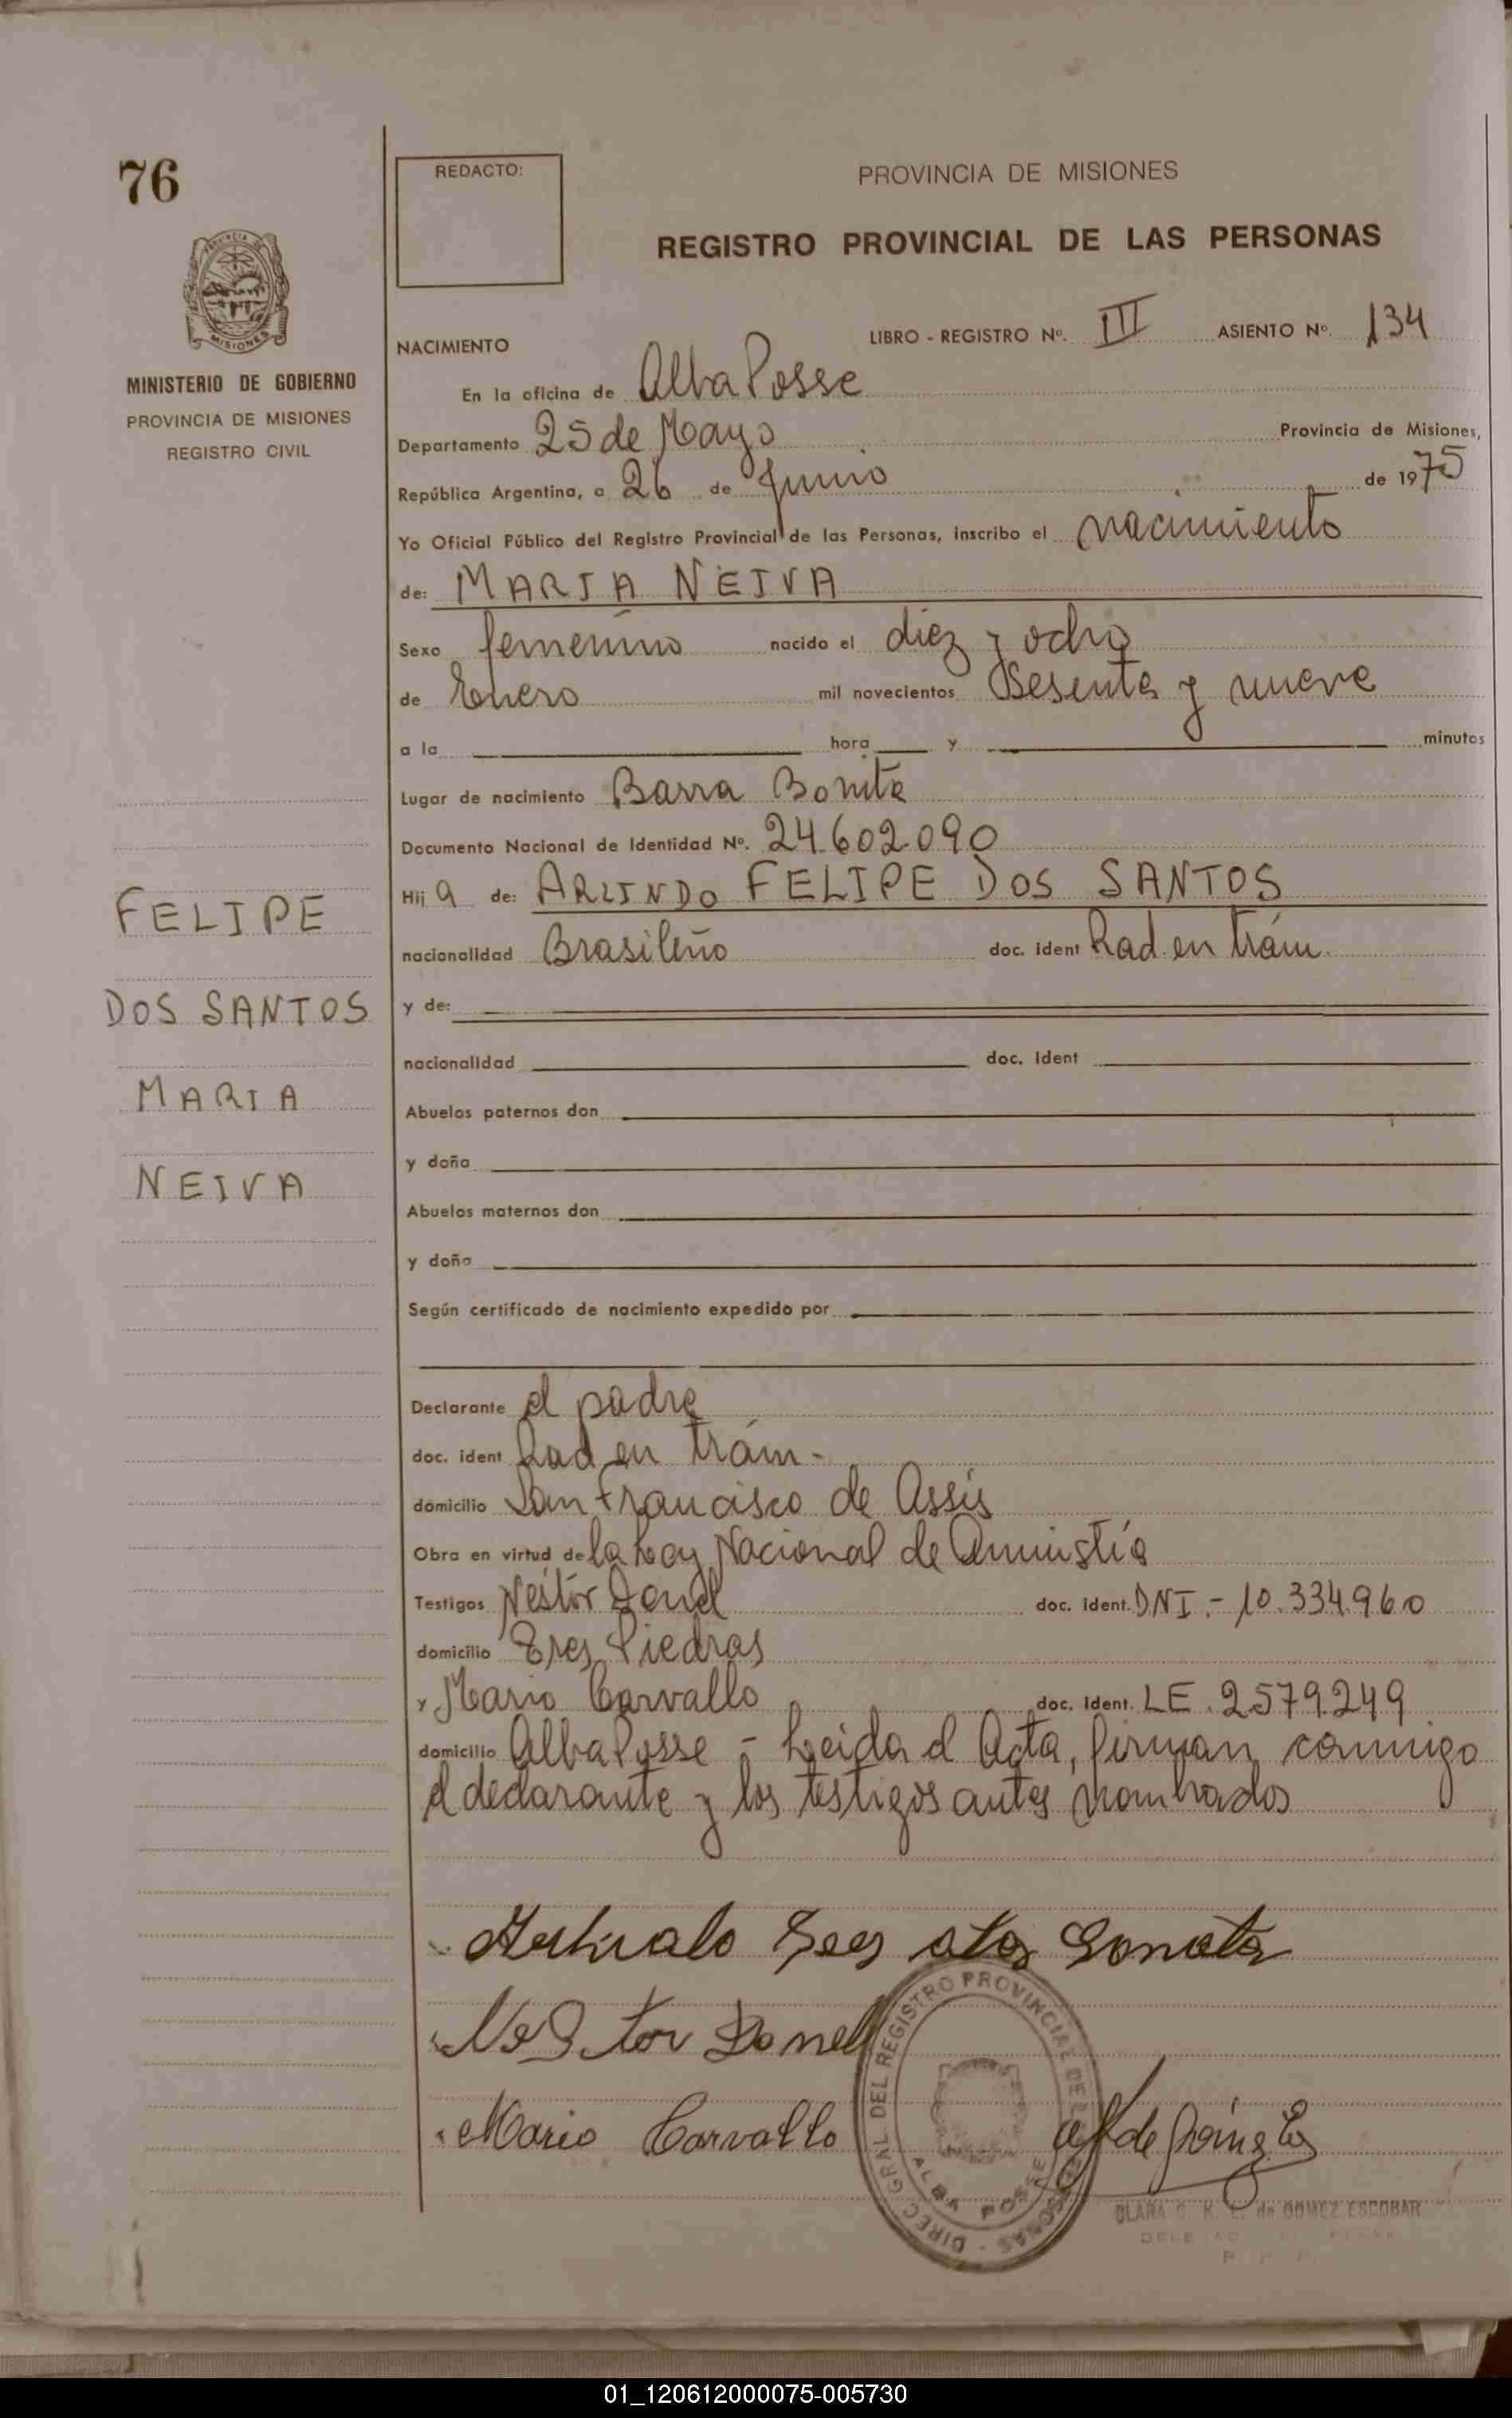 76
REDACTO:
PROVINCIA DE MISIONES
REGISTRO PROVINCIAL DE LAS PERSONAS
MISIONES
MINISTERIO DE GOBIERNO
PROVINCIA DE MISIONES
REGISTRO CIVIL
LIBRO - REGISTRO Nº. III ASIENTO Nº. 134
NACIMIENTO
En la oficina de Alba Posse
Departamento 25 de Mayo Provincia de Misiones,
República Argentina, a 26 de Junio de 1975
Yo Oficial Público del Registro Provincial de las Personas, inscribo el nacimiento
de: MARIA NEIVA
Sexo femenino nacido el diez y ocho
de Enero mil novecientos Sesenta y nueve
a la hora y minutos
Lugar de nacimiento Barra Bonita
Documento Nacional de Identidad Nº. 24.602.090
Hij a de: ARLINDO FELIPE DOS SANTOS
nacionalidad Brasileño doc. ident Rad. en trám.
y de:
nacionalidad doc. Ident
Abuelos paternos don
y doña
Abuelos maternos don
y doña
Según certificado de nacimiento expedido por
Declarante el padre
doc. ident Rad en trám -
domicilio San Francisco de Assis
Obra en virtud de la Ley Nacional de Amnistía
Testigos Néstor Donel doc. ident. DNI.- 10.334.960
domicilio Tres Piedras
y Mario Carvallo doc. Ident. LE. 2579.249
domicilio Alba Posse - Leida el Acta, firman conmigo
el declarante y los testigos antes nombrados
FELIPE
DOS SANTOS
MARIA
NEIVA
Nestor Donell
Mario Carvallo
DIREC GRAL DEL REGISTRO PROVINCIAL DE LAS PERSONAS -
ALBA POSSE
de GOMEZ ESCOBAR
01_120612000075-005730